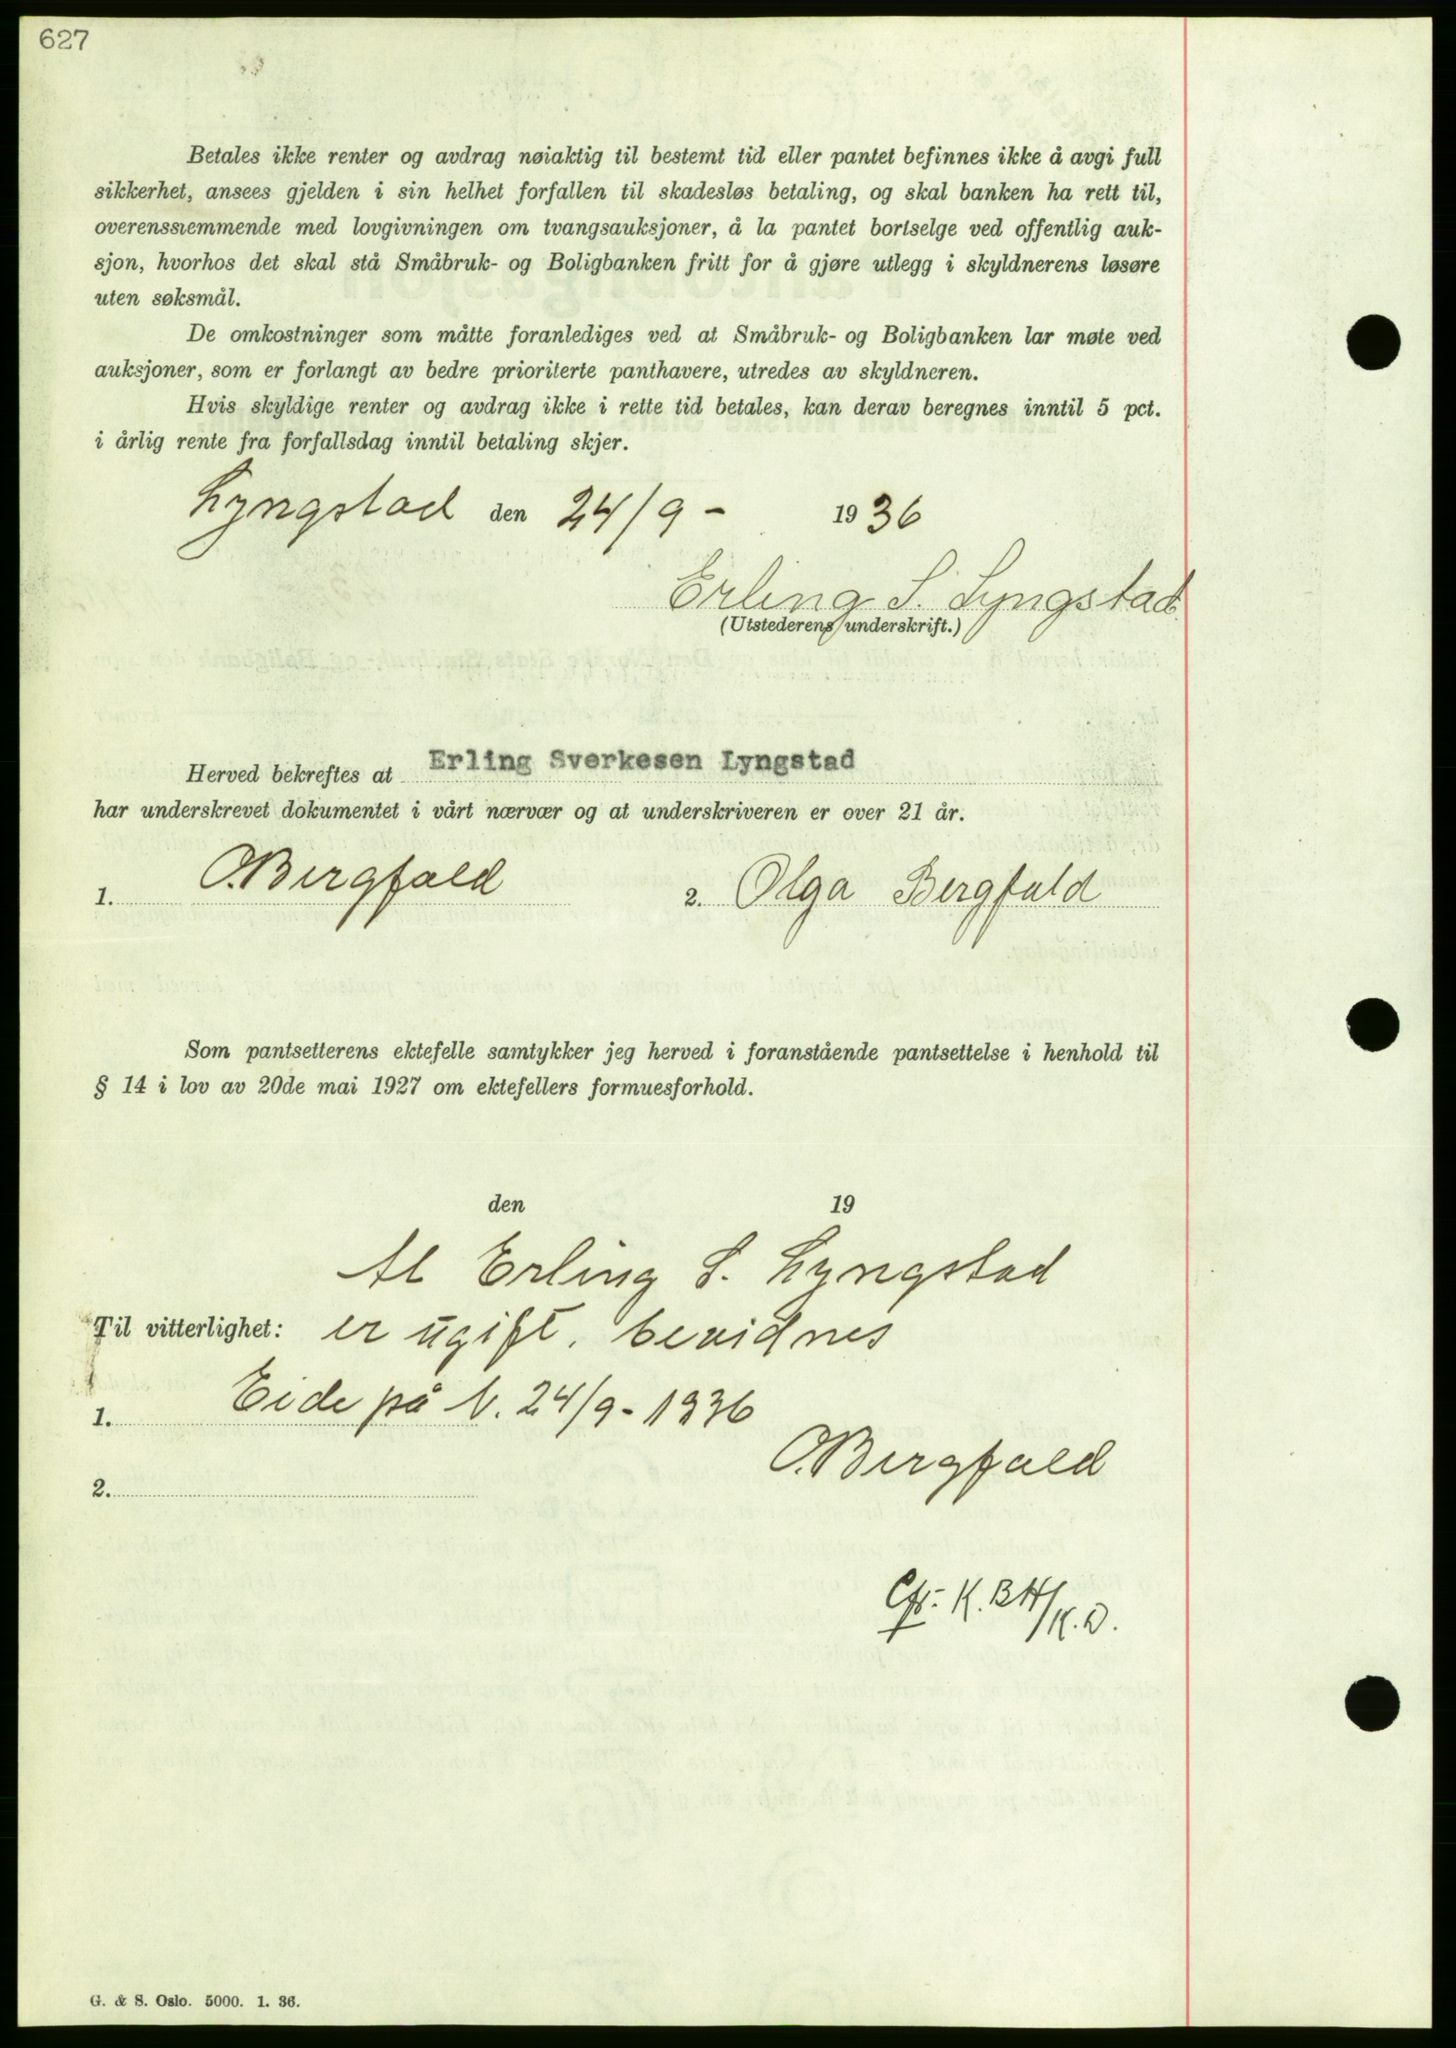 627
Betales ikke renter og avdrag nøiaktig til bestemt tid eller pantet befinnes ikke å avgi full
sikkerhet, ansees gjelden i sin helhet forfallen til skadesløs betaling, og skal banken ha rett til,
overenssiemmende med lovgivningen om tvangsauksjoner, å la pantet bortselge ved offentlig auk-
sjon, hvorhos det skal stå Småbruk- og Boligbanken fritt for å gjøre utlegg i skyldnerens løsøre
uten søksmål.
De omkostninger som måtte foranlediges ved at Småbruk- og Boligbanken lar møte ved
auksjoner, som er forlangt av bedre prioriterte panthavere, utredes av skyldneren.
Hvis skyldige renter og avdrag ikke i rette tid betales, kan derav beregnes inntil 5 pct.
i årlig rente fra forfallsdag inntil betaling skjer.
Lyngstad den 24/9 - 1936
Erling S. Lyngstad
(Utstederens underskrift.)
Herved bekreftes at Erling Sverkesen Lyngstad
har underskrevet dokumentet i vårt nærvær og at underskriveren er over 21 år.
1. O.Bergfald 2. Olga Bergfald
Som pantsetterens ektefelle samtykker jeg herved i foranstående pantsettelse i henhold til
§ 14 i lov av 20de mai 1927 om ektefellers formuesforhold.
den 19
At Erling S. Lyngstad
Til vitterlighet: er ugift. bevidnes
1. Eide på N. 24/9-1936
O.Bergfald
2.
G. & S. Oslo. 5000. 1. 36.